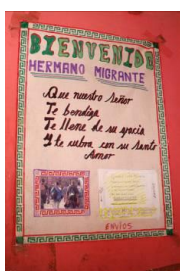 BIENVENIDO
HERMANO MIGRANTE
Que nuestro Señor
Te bendiga
Te llene de su gracia
Y le cubra con su Santo
Amor
ENVIOS